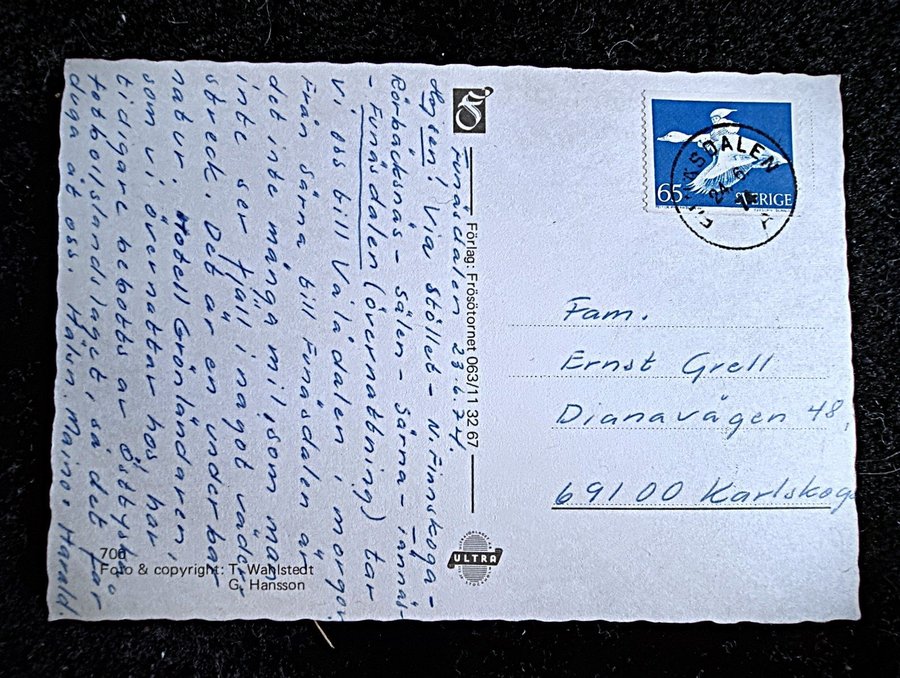 Funäsdalen 23.6.74.
Hejsan! Via Stöllet - N. Finnskoga -
Rörbäcksnäs - Sälen - Särna - Tännäs-
- Funäsdalen (övernattning) tar
vi oss till Vålådalen i morgon.
Från Särna till Funäsdalen är
det inte många mil, som man
inte ser fjäll i något väder-
streck. Det är en underbar
natur. Hotell Grönländaren,
som vi övernattar hos, har
tidigare bebotts av Östtyska
fotbollslandslaget, så det får
duga åt oss. Häls. Maino, Harald.
Förlag: Frösötornet 063/11 32 67
706
Foto & copyright: T. Wahlstedt
G. Hansson
ULTRA
65 SVERIGE
FUNÄSDALEN
24.6
Fam.
Ernst Grell
Dianavägen 48,
69100 Karlskoga